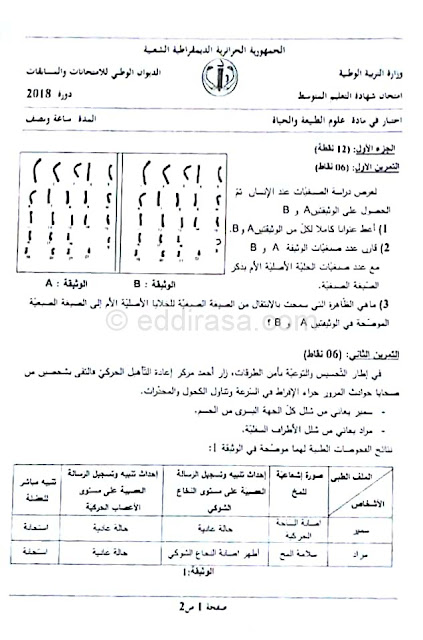 الجمهورية الجزائرية الديمقراطية الشعبية
وزارة التربية الوطنية
الديوان الوطني للامتحانات والمسابقات
امتحان شهادة التعليم المتوسط
دورة 2018
اختبار في مادة علوم الطبيعة والحياة
المدة ساعة ونصف
الجزء الأول: (12 نقطة)
التمرين الأول: (06 نقاط)
لغرض دراسة الصبغيات عند الإنسان تمّ
الحصول على الوثيقتين A و B
1) أعط عنوانا كاملا لكلّ من الوثيقتين A و B.
2) قارن عدد صبغيات الوثيقة A و B
مع عدد صبغيات الخلية الأصلية الأم بذكر
الصيغة الصبغية.
الوثيقة : B
الوثيقة : A
3) ما هي الظاهرة التي سمحت بالانتقال من الصيغة الصبغية للخلايا الأصلية الأم إلى الصيغة الصبغية
الموضحة في الوثيقتين A و B ؟
© eddirasa.com
التمرين الثاني: (06 نقاط)
في إطار التحسيس والتوعية بأمن الطرقات، زار أحمد مركز إعادة التأهيل الحركي والتقى بشخصين من
ضحايا حوادث المرور جراء الإفراط في السرعة وتناول الكحول والمخدرات.
- سمير يعاني من شلل كلّ الجهة اليسرى من الجسم.
- مراد يعاني من شلل الأطراف السفلية.
نتائج الفحوصات الطبية لهما موضحة في الوثيقة 1:
الملف الطبي
الأشخاص
صورة إشعاعية للمخ
إحداث تنبيه وتسجيل الرسالة العصبية على مستوى النخاع الشوكي
إحداث تنبيه وتسجيل الرسالة العصبية على مستوى الأعصاب الحركية
تنبيه مباشر للعضلة
سمير
إصابة الساحة الحركية
حالة عادية
حالة عادية
استجابة
مراد
سلامة المخ
أظهر إصابة النخاع الشوكي
حالة عادية
استجابة
الوثيقة:1
صفحة 1 من 2